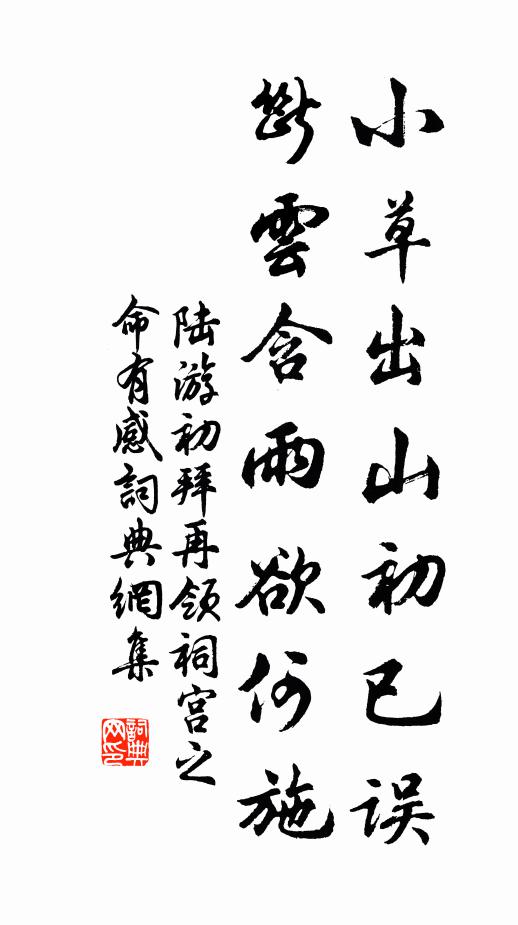 小草出山初已误
断雲含雨欲何施
陆游初拜再领祠宫之
命有感詞典網集
詞典
网印